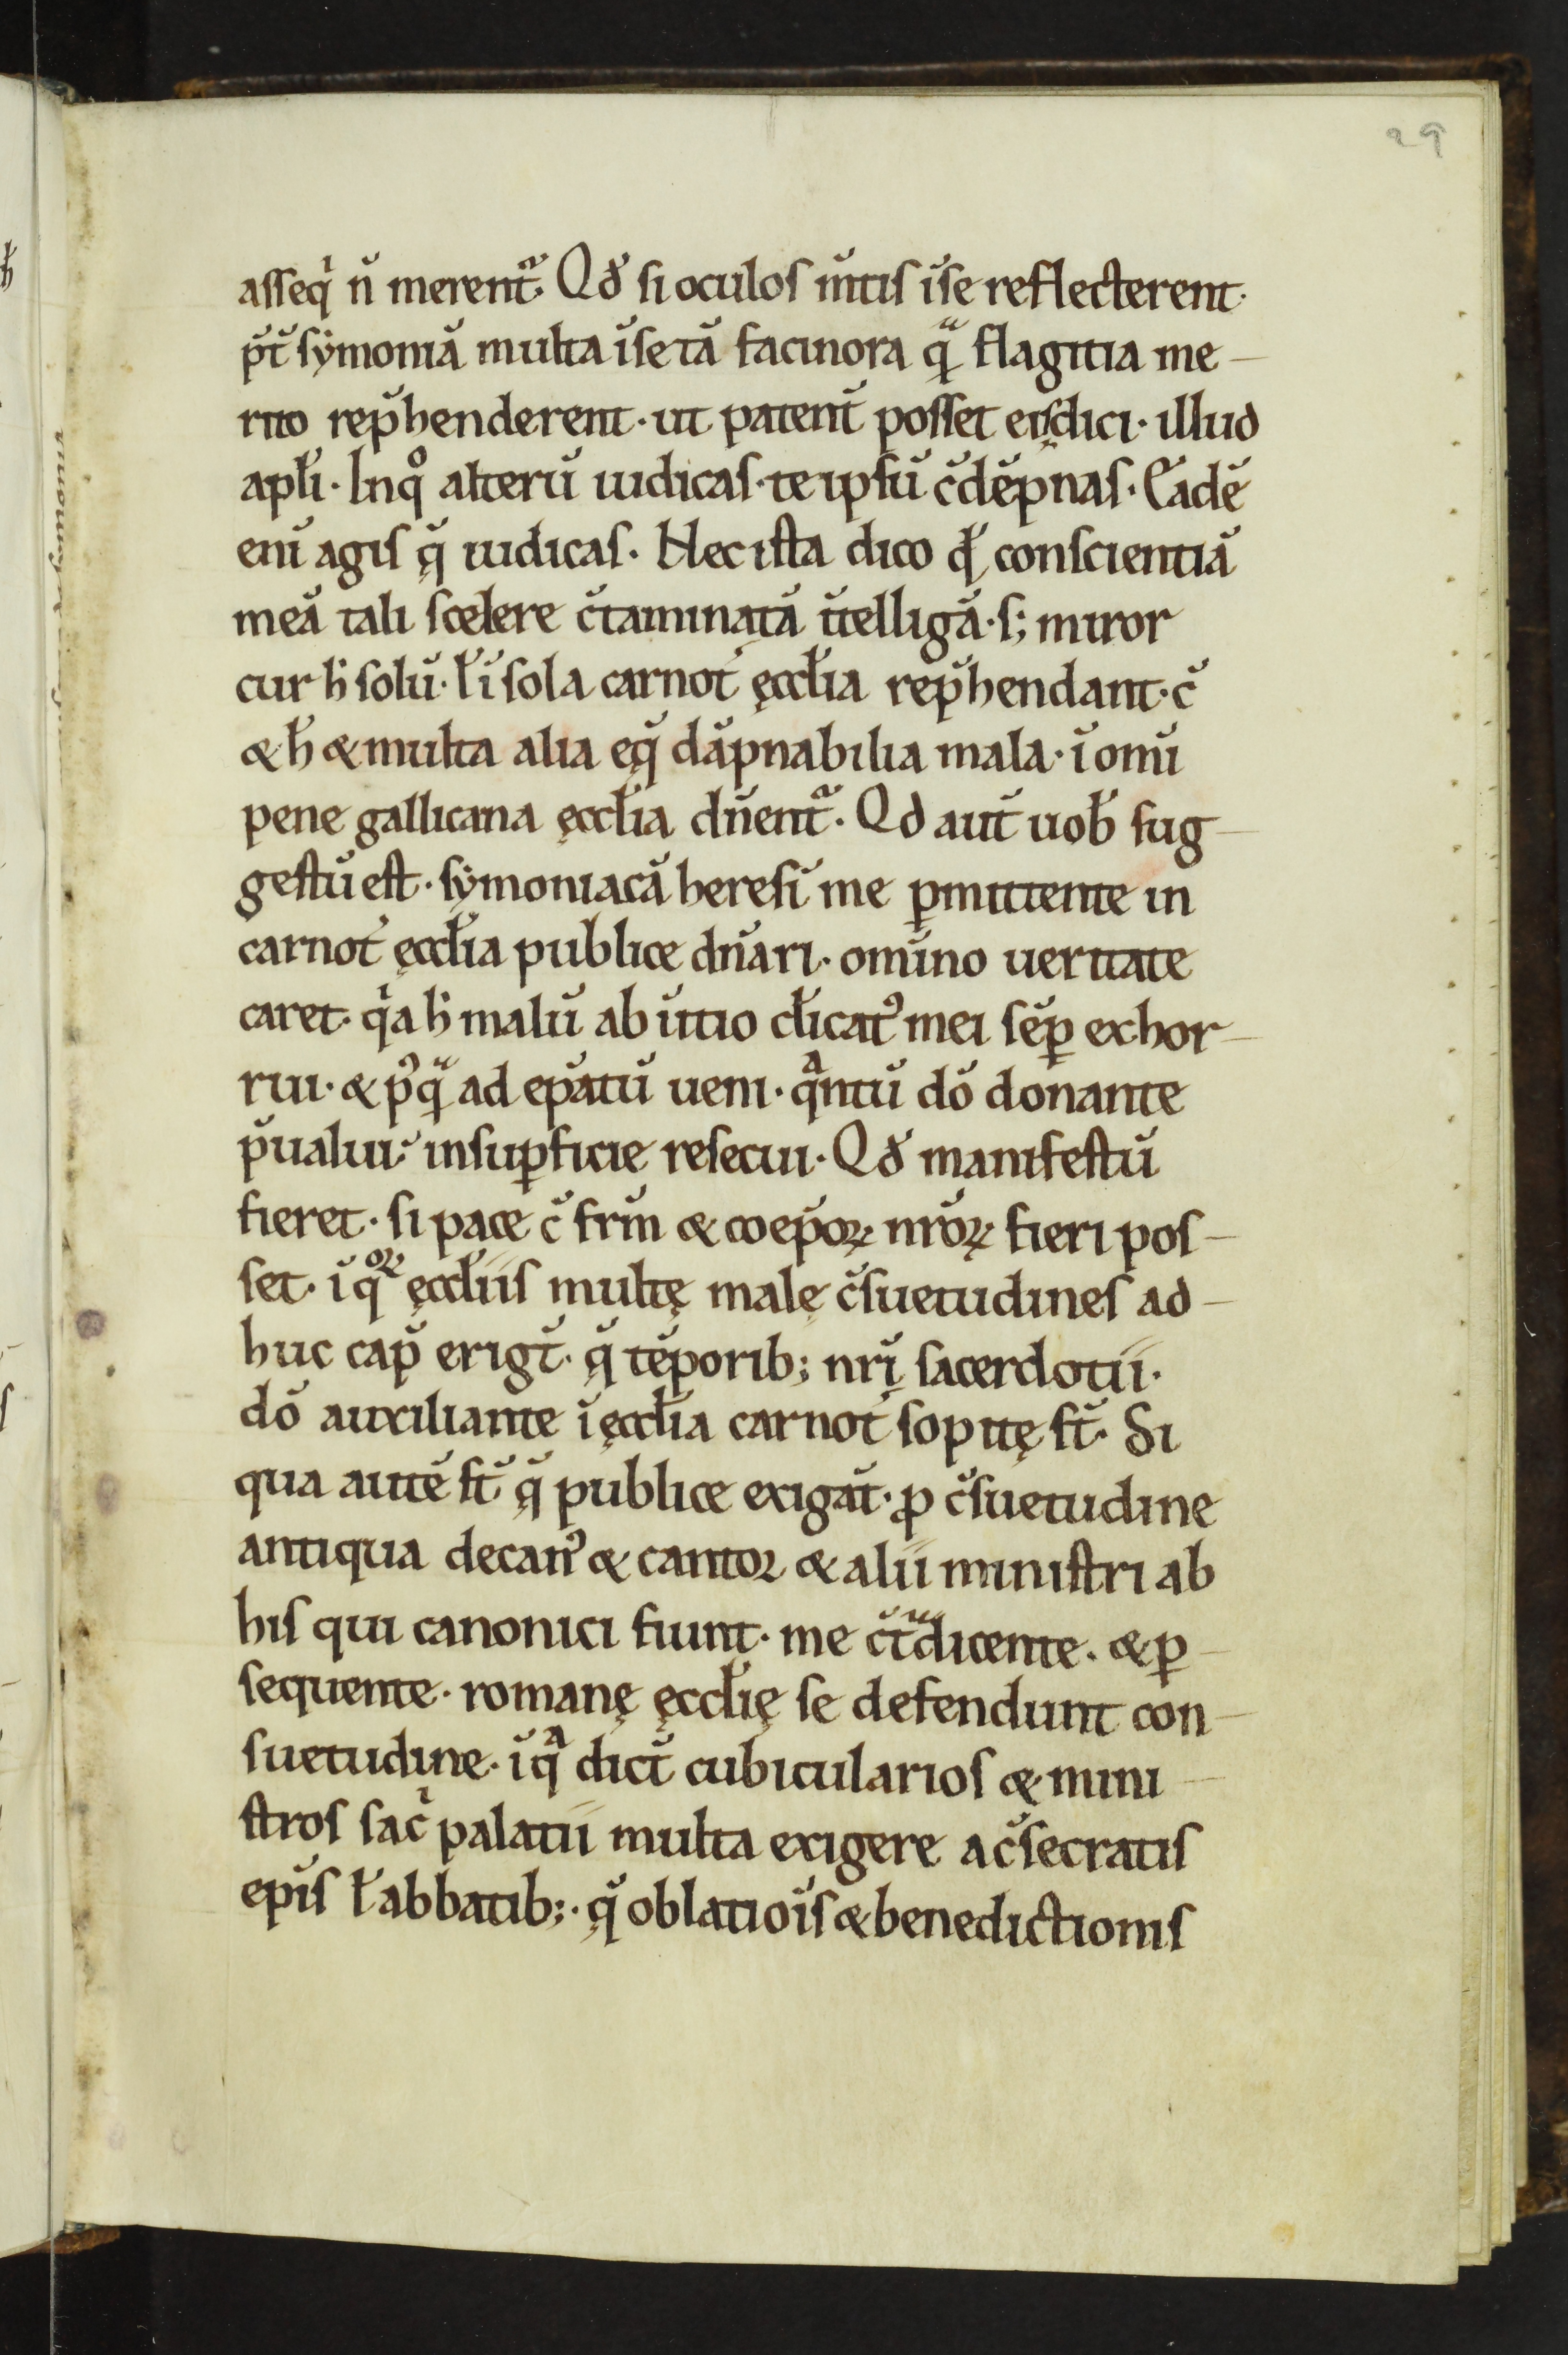 29
asseqͥ n̄ merent᷑. Qd̕ si oculos m̄tis īse reflecterent·
p̄t̄ sẏmoniā multa īse tā facinora q̄ᷓ flagitia me-
rito rep̄henderent· ut patent̄ posset eisdici· illud
apłi· Inqͦ alterū iudicas· te ipsū c̄dēpnas· Eadē
enī agis q̨̄ iudicas· Hec ista dico qd̕ conscientiā
meā tali scelere c̄taminatā īt̄elligā· s; miror
cur h̕ solū· ł ī sola carnot̕ ęccłia rep̄hendant· c̄
& h̕ & multa alia eq̨̄ dāpnabilia mala· ī omī
pene gallicana ęccłia dn̄ent᷑. Qd aut̄ uob̕ sug-
gestū est· sẏmoniacā heresī me ꝑmittente in
carnot̕ ęccłia publice dn̄ari· omīno ueritate
caret· qͥa h̕ malū ab īitio cłicatꝰ mei sēꝑ exhor-
rui· & pꝰqᷓ ad ep̄atū ueni· qᷓntū dō donante
p̄ualui· insuꝑficie resecui· Qd̕ manifestū
fieret· si pace c̄ fr̄m & coep̄oꝝ nr̄oꝝ fieri pos-
set· ī qͦꝝ ęccłiis multę malę c̄suetudines ad-
huc cap̄ erigt̄· q̨̄ tēporib; nr̄i sacerdotii·
dō auxiliante ī ęccłia carnot̕ sopitę st̄· Si
qua autē st̄ q̨̄ publice exigāt· ꝓ c̄suetudine
antiqua decanꝰ & cantoꝛ & alii ministri ab
his qui canonici fiunt· me c̄tᷓdicente· & ꝑ-
sequente· romanę ęccłię se defendunt con-
suetudine· ī qᷓ dict̄ cubicularios & mini-
stros sacͥ palatii multa exigere a c̄secratis
ep̄is ł abbatib;· q̨̄ oblatiōis & benedictionis